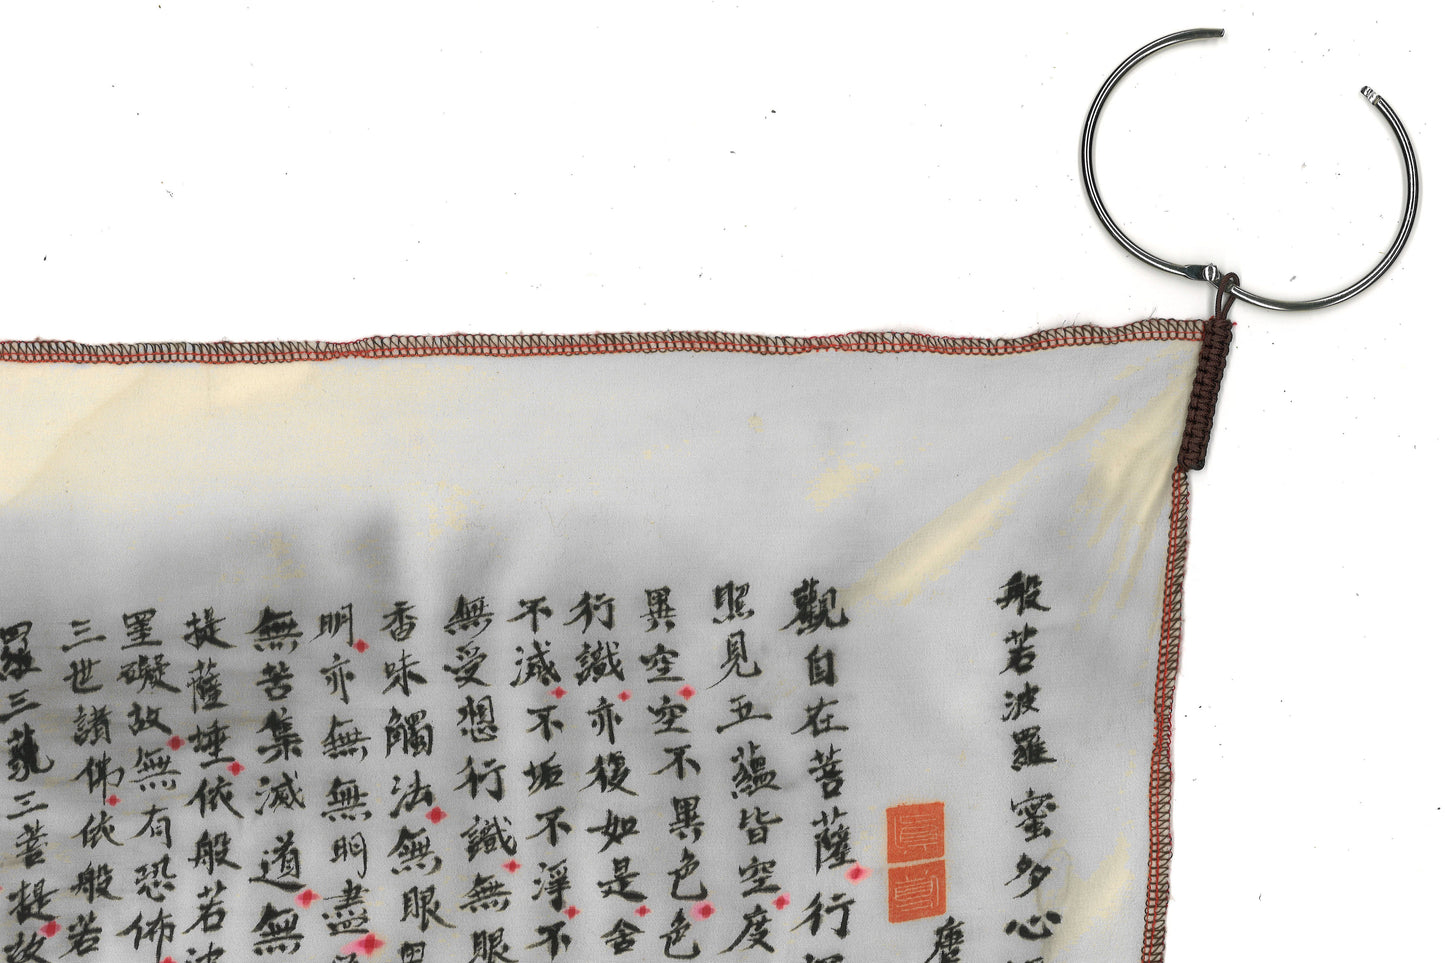 般若波羅蜜多心
唐
觀自在菩薩行
照見五蘊皆空度
異空空不異色色
行識亦復如是舍
不滅不垢不淨不
無受想行識無眼
香味觸法無眼界
明亦無無明盡
無苦集滅道無
提薩埵依般若波
罣礙故無有恐佈
三世諸佛依般若
羅三藐三菩提故